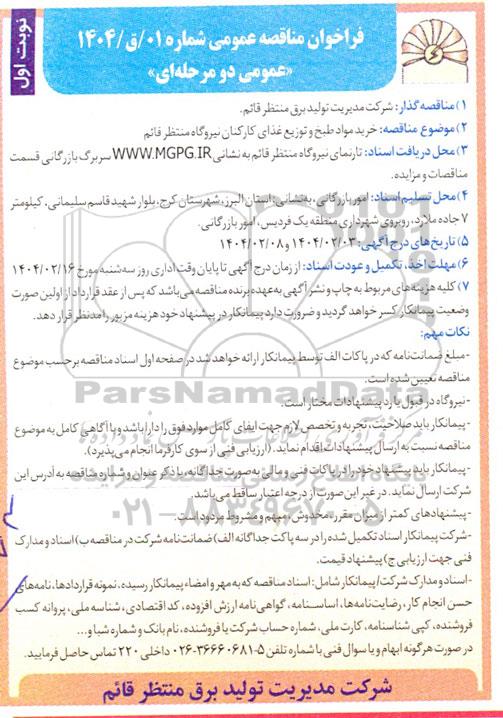 نوبت اول
فراخوان مناقصه عمومی شماره ۰۱/ق/۱۴۰۴
«عمومی دو مرحله‌ای»
۱) مناقصه گذار: شرکت مدیریت تولید برق منتظر قائم.
۲) موضوع مناقصه: خرید مواد طبخ و توزیع غذای کارکنان نیروگاه منتظر قائم
۳) محل دریافت اسناد: تارنمای نیروگاه منتظر قائم به نشانی WWW.MGPG.IR سربرگ بازرگانی قسمت
مناقصات و مزایده.
۴) محل تسلیم اسناد: امور بازرگانی، به نشانی: استان البرز، شهرستان کرج، بلوار شهید قاسم سلیمانی، کیلومتر
۷ جاده ملارد، روبروی شهرداری منطقه یک فردیس، امور بازرگانی.
۵) تاریخ‌های درج آگهی: ۱۴۰۴/۰۲/۰۳ و ۱۴۰۴/۰۲/۰۸
۶) مهلت اخذ، تکمیل و عودت اسناد: از زمان درج آگهی تا پایان وقت اداری روز سه‌شنبه مورخ ۱۴۰۴/۰۲/۱۶
۷) کلیه هزینه‌های مربوط به چاپ و نشر آگهی به عهده برنده مناقصه می‌باشد که پس از عقد قرارداد از اولین صورت
وضعیت پیمانکار کسر خواهد گردید و ضرورت دارد پیمانکار در پیشنهاد خود هزینه مزبور را مدنظر قرار دهد.
نکات مهم:
-مبلغ ضمانت‌نامه که در پاکات الف توسط پیمانکار ارائه خواهد شد در صفحه اول اسناد مناقصه برحسب موضوع
مناقصه تعیین شده است.
-نیروگاه در قبول یا رد پیشنهادات مختار است.
-پیمانکار باید صلاحیت، تجربه و تخصص لازم جهت ایفای کامل موارد فوق را دارا باشد و با آگاهی کامل به موضوع
مناقصه نسبت به ارسال پیشنهادات اقدام نماید. (ارزیابی فنی از سوی کارفرما انجام می‌پذیرد).
-پیمانکار باید پیشنهاد خود را در پاکات فنی و مالی به صورت جداگانه، با ذکر عنوان و شماره مناقصه به آدرس این
شرکت ارسال نماید. در غیر این صورت از درجه اعتبار ساقط می‌باشد.
-پیشنهادهای کمتر از میزان مقرر، مخدوش، مبهم و مشروط مردود است.
-شرکت پیمانکار اسناد تکمیل شده را در سه پاکت جداگانه الف) ضمانت‌نامه شرکت در مناقصه ب) اسناد و مدارک
فنی جهت ارزیابی ج) پیشنهاد قیمت.
-اسناد و مدارک شرکت/پیمانکار شامل: اسناد مناقصه که به مهر و امضاء پیمانکار رسیده. نمونه قراردادها، نامه‌های
حسن انجام کار، رضایت‌نامه‌ها، اساسنامه، گواهی‌نامه ارزش افزوده، کد اقتصادی، شناسه ملی، پروانه کسب
فروشنده، کپی شناسنامه، کارت ملی، شماره حساب شرکت یا فروشنده، نام بانک و شماره شبا و...
در صورت هرگونه ابهام و یا سوال فنی با شماره تلفن ۵-۳۶۶۶۰۶۸۱-۰۲۶ داخلی ۲۲۰ تماس حاصل فرمایید.
شرکت مدیریت تولید برق منتظر قائم
ParsNamadData
۰۲۱-۸۸۳۴۹۶۷۰-۵